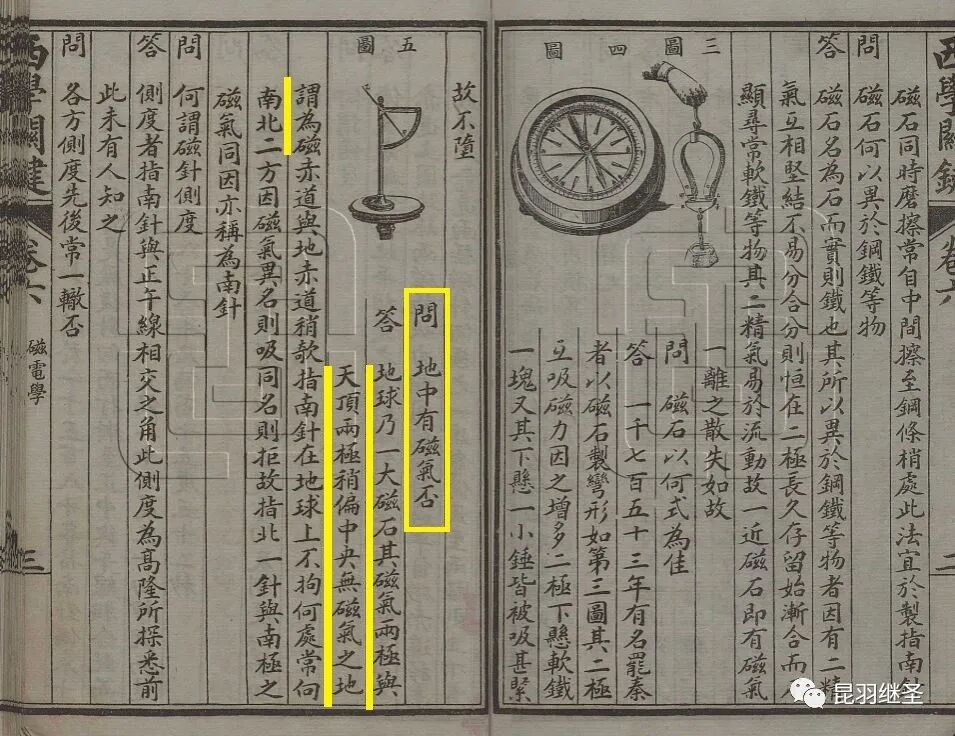 西學關鍵
卷六
二
磁石同時磨擦常自中間擦至鋼條梢處此法宜於製指南針
問 磁石何以異於鋼鐵等物
答 磁石名為石而實則鐵也其所以異於鋼鐵等物者因有二精
氣互相堅結不易分合分則恒在二極長久存留始漸合而
顯尋常軟鐵等物其二精氣易於流動故一近磁石即有磁氣
一離之散失如故
三圖
四圖
問 磁石以何式為佳
答 一千七百五十三年有名罷秦
者以磁石製彎形如第三圖其二極
互吸磁力因之增多二極下懸軟鐵
一塊又其下懸一小錘皆被吸甚緊
故不墮
五圖
問 地中有磁氣否
答 地球乃一大磁石其磁氣兩極與
天頂兩極稍偏中央無磁氣之地
謂為磁赤道與地赤道稍欹指南針在地球上不拘何處常向
南北二方因磁氣異名則吸同名則拒故指北一針與南極之
磁氣同因亦稱為南針
問 何謂磁針側度
答 側度者指南針與正午線相交之角此側度為高隆所探悉前
此未有人知之
問 各方側度先後常一轍否
西學關鍵
卷六
磁電學
三
昆羽继圣